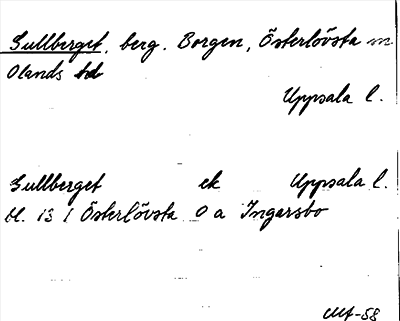 Gullberget, berg. Borgen, Österlövsta sn
Olands hd
Uppsala l.
Gullberget ek Uppsala l.
bl. 13 I Österlövsta O a Ingarsbo
MA-58